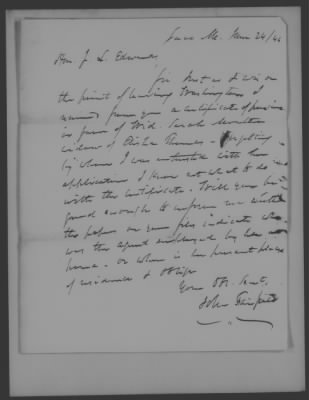 Saco Me. Nov 24/46
Hon. J. L. Edwards,
Sir Just as I was on
the point of leaving Washington I
received from you a certificate of pension
in favor of Wid. Sarah
widow of - forgetting
by whom I was entrusted with her
application I know not what to do
with the certificate. Will you be
good enough to inform me whether
the papers on your files indicate who
was the agent employed by her at
home - or where is her present place
of residence & oblige
Your Ob. Servt,
John Fairfield